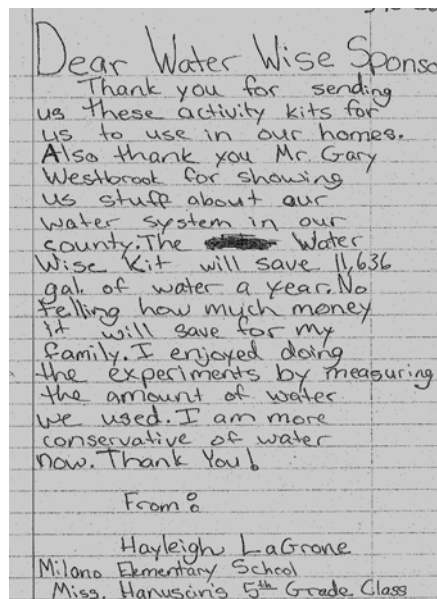 Dear Water Wise Sponso
Thank you for sending
us these activity kits for
us to use in our homes.
Also thank you Mr. Gary
Westbrook for showing
us stuff about our
water system in our
county. The Water
Wise Kit will save 11,636
gal. of water a year. No
telling how much money
it will save for my
family. I enjoyed doing
the experiments by measuring
the amount of water
we used. I am more
conservative of water
now. Thank You!
From:
Hayleigh LaGrone
Milano Elementary School
Miss. Hanuscin's 5th Grade Class